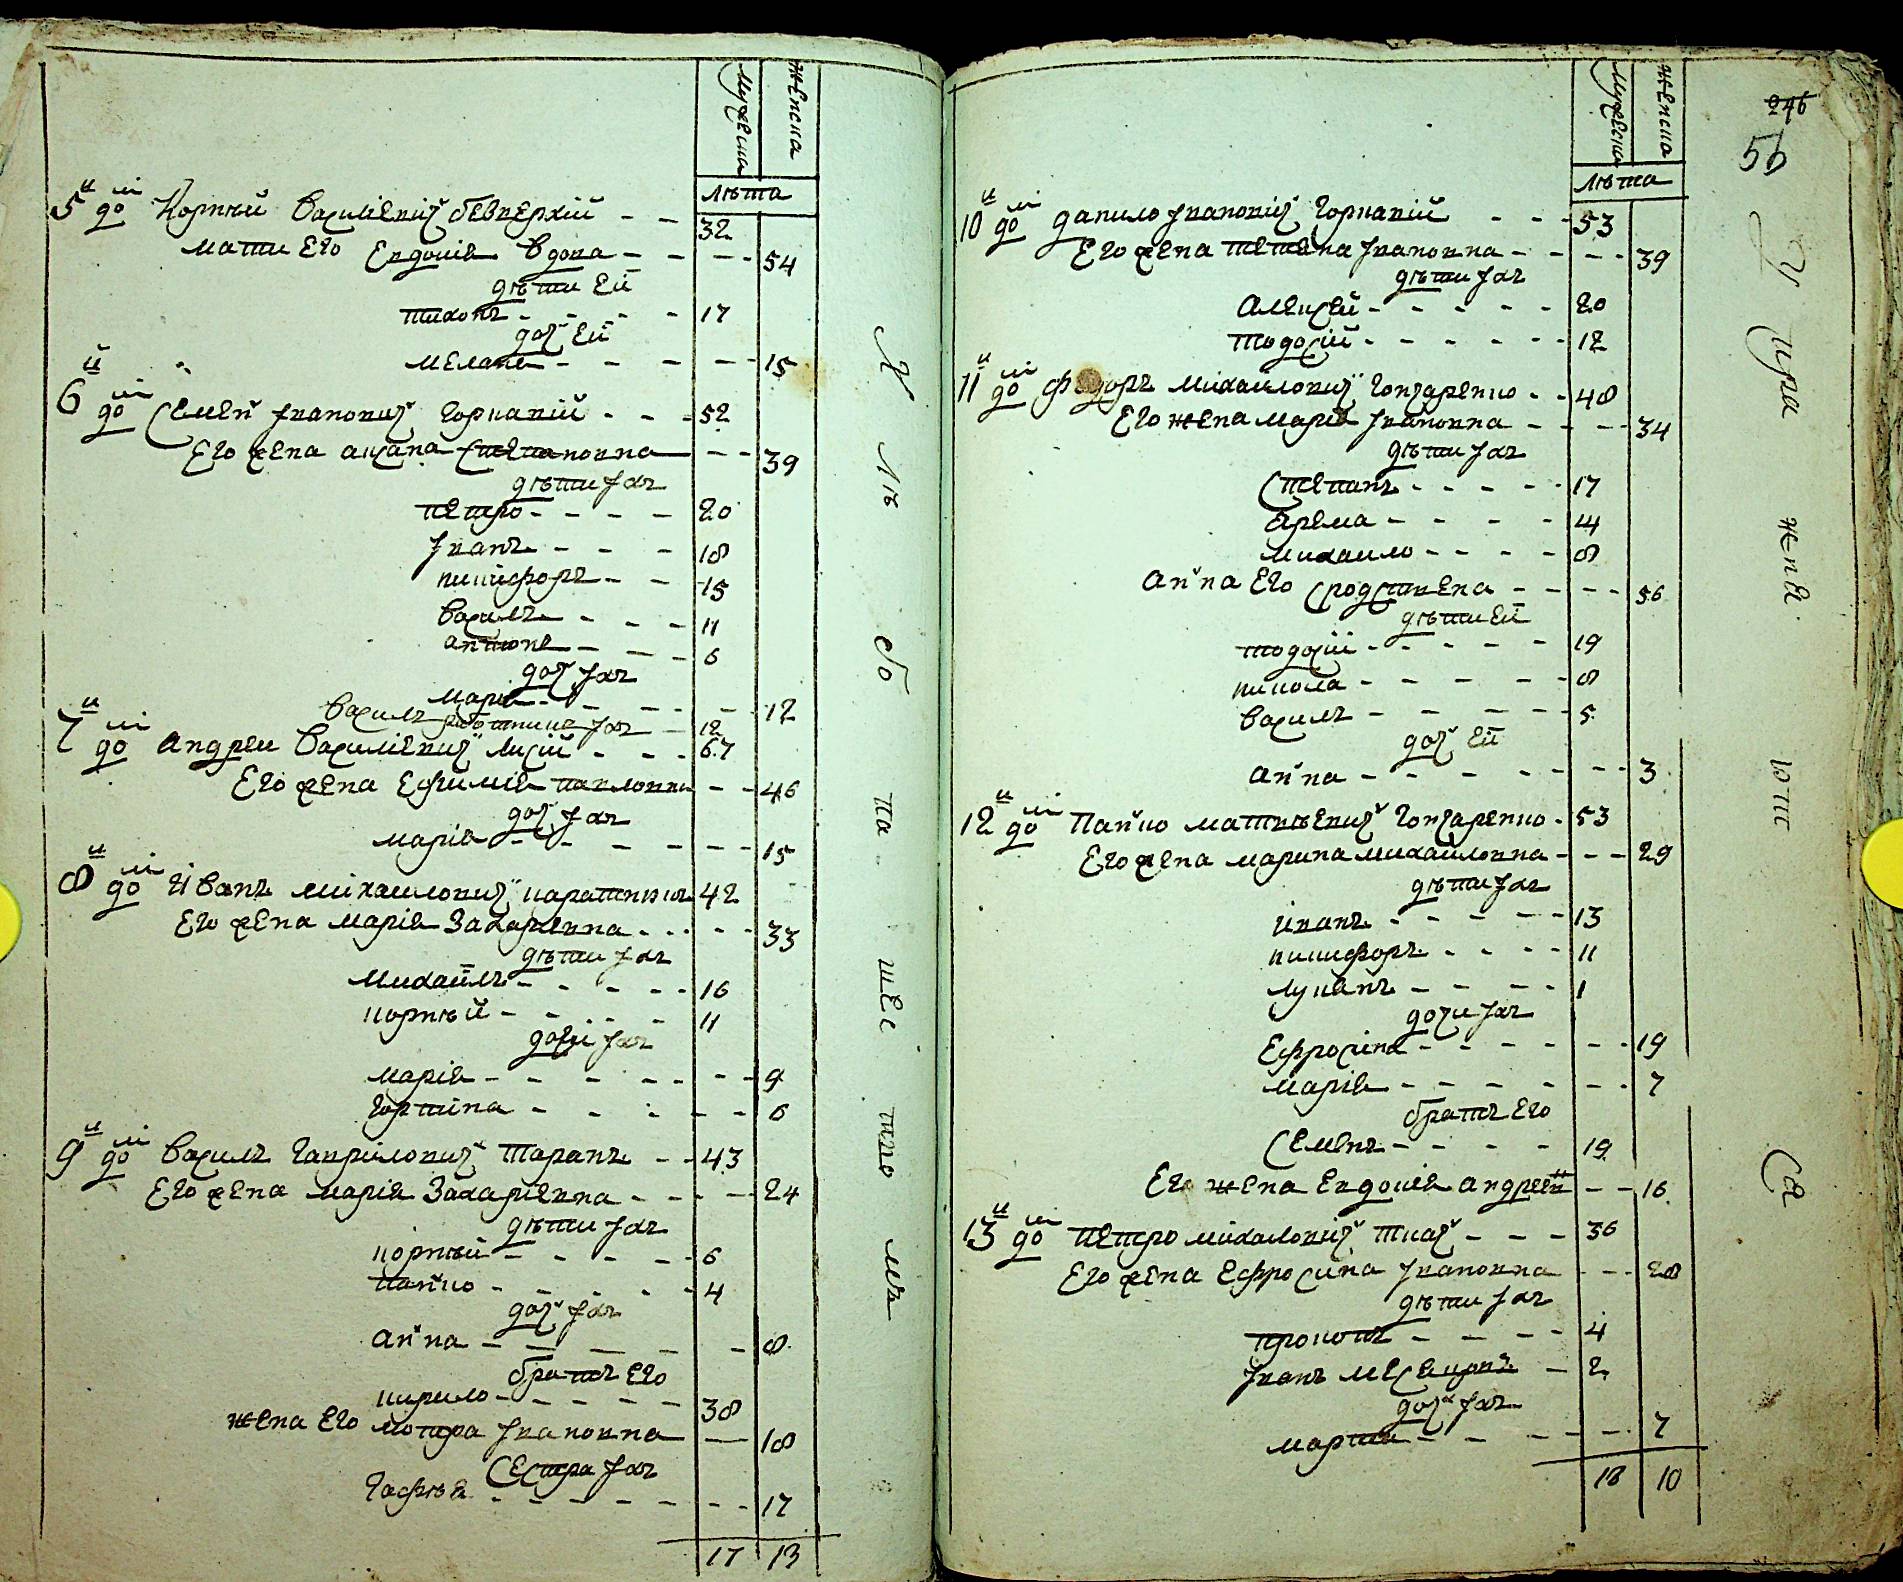 мужеска женска
лѣта
5й дом Корнѣй Василіевич безверхій 32
мати его Евдокія вдова 54
дѣти ей
тихонъ 17
доч ей
меланія 15
6й дом Семен Іванович Чорнавій 52
его жена аксана Степановна 39
дѣти іхъ
петро 20
Іванъ 18
никифоръ 15
василъ 11
антонъ 6
доч іхъ
марія 12
василъ работникъ іхъ 12
7й дом андреи Василіевич лисій 67
его жена Ефимія павловна 46
доч іхъ
марія 15
8й дом Иванъ михаилович 42
его жена марія Захаріевна 33
дѣти іхъ
михаилъ 16
корнѣй 11
дочки іхъ
марія 9
горпина 6
9й дом василъ гаврилович таранъ 43
его жена марія Захаріевна 24
дѣти іхъ
корнѣй 6
панко 4
доч іхъ
анна 8
братъ его
кирило 38
жена его мотра Івановна 18
Сестра іхъ
гафѣя 17
17 13
246
56
мужеска женска
лѣта
10й дом данило Іванович Чорнавій 53
его жена тетяна Івановна 39
дѣти іхъ
алексей 20
тодосій 12
11й дом федоръ михайлович гончаренко 48
его жена марія Івановна 34
дѣти іхъ
Степанъ 17
ярема 14
михаило 8
анна его сродствена 56
дѣти ей
тодосій 19
никола 8
василъ 5
доч ей
анна 3
12й дом Панко матвѣевич гончаренко 53
его жена марина михайловна 29
дѣти іхъ
иванъ 13
никифоръ 11
лукянъ 1
дочки іхъ
Ефросина 19
марія 7
братъ его
Семенъ 19
его жена Евдокія андреев 16
13й дом петро михалович ткач 36
его жена Ефросина Івановна 28
дѣти іхъ
прокопъ 4
Іванъ 2
доч іхъ
марта 7
18 10